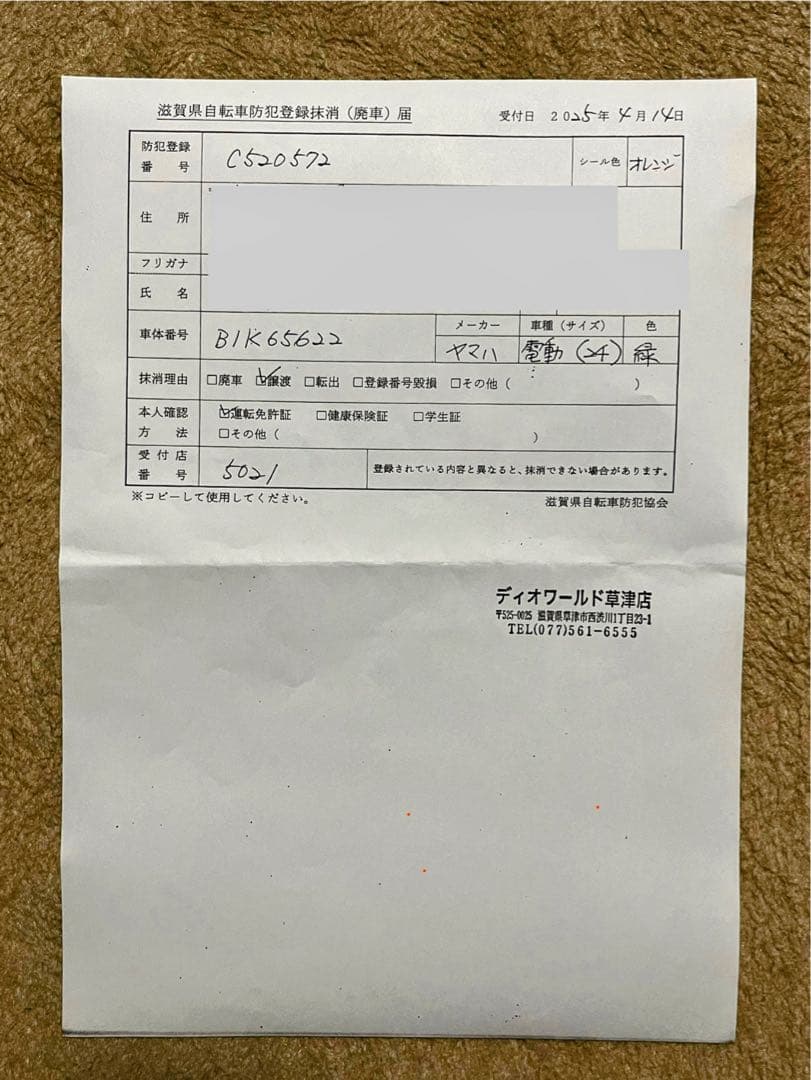 滋賀県自転車防犯登録抹消（廃車）届 受付日 2025年 4月 14日
防犯登録番号 C520572 シール色 オレンジ
住所
フリガナ
氏名
車体番号 B1K65622 メーカー ヤマハ 車種（サイズ） 電動（24） 色 緑
抹消理由 □廃車 ☑譲渡 □転出 □登録番号毀損 □その他（ ）
本人確認方法 ☑運転免許証 □健康保険証 □学生証
□その他（ ）
受付店番号 5021 登録されている内容と異なると、抹消できない場合があります。
※コピーして使用してください。 滋賀県自転車防犯協会
ディオワールド草津店
〒525-0025 滋賀県草津市西渋川1丁目23-1
TEL(077)561-6555